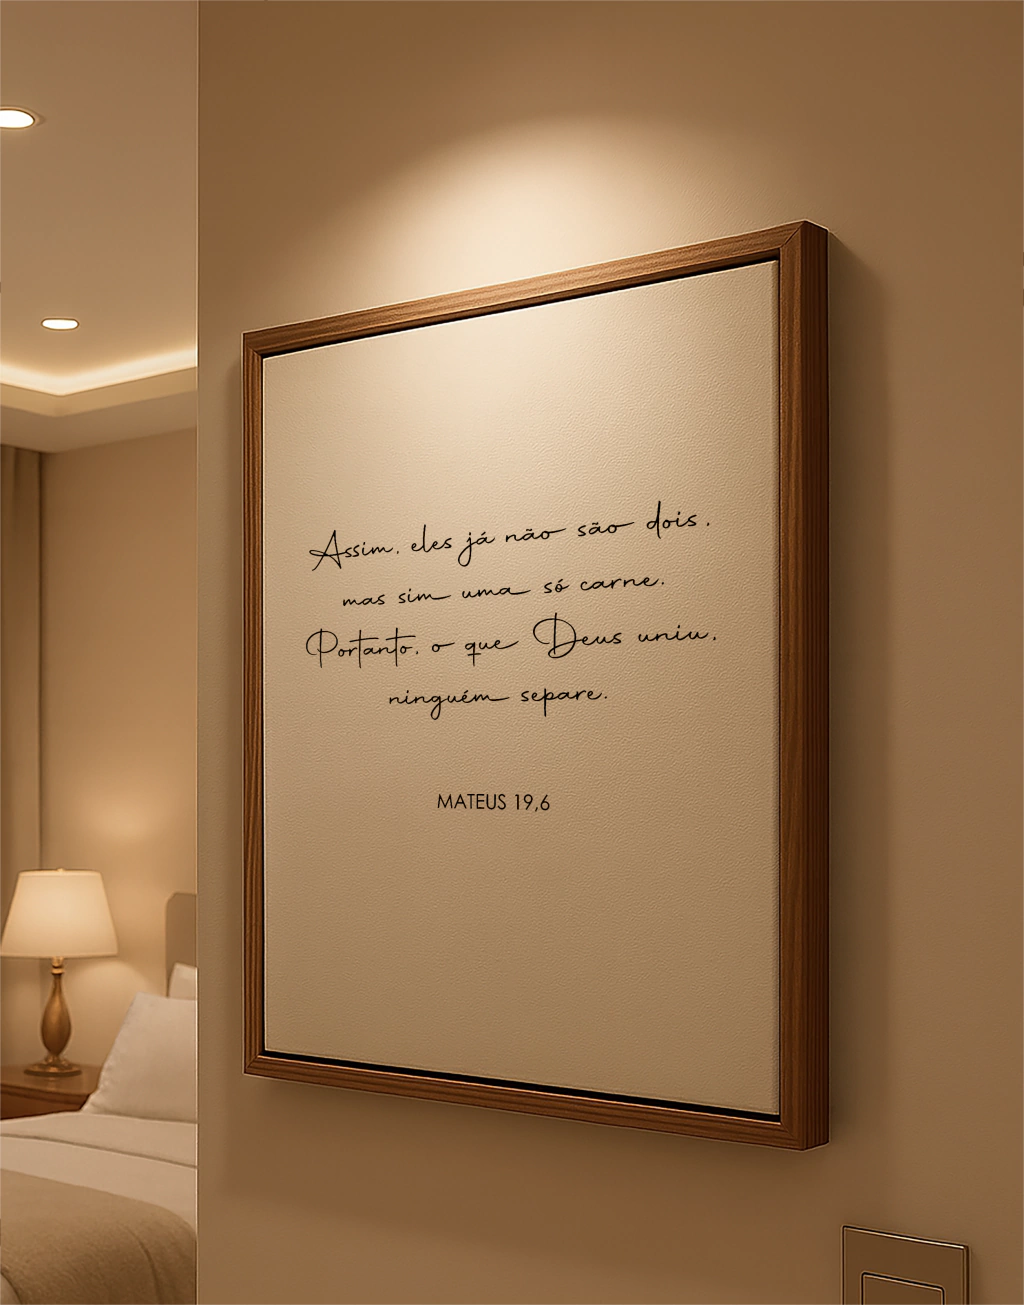 Assim, eles já não são dois,
mas sim uma só carne.
Portanto, o que Deus uniu,
ninguém separe.
MATEUS 19,6